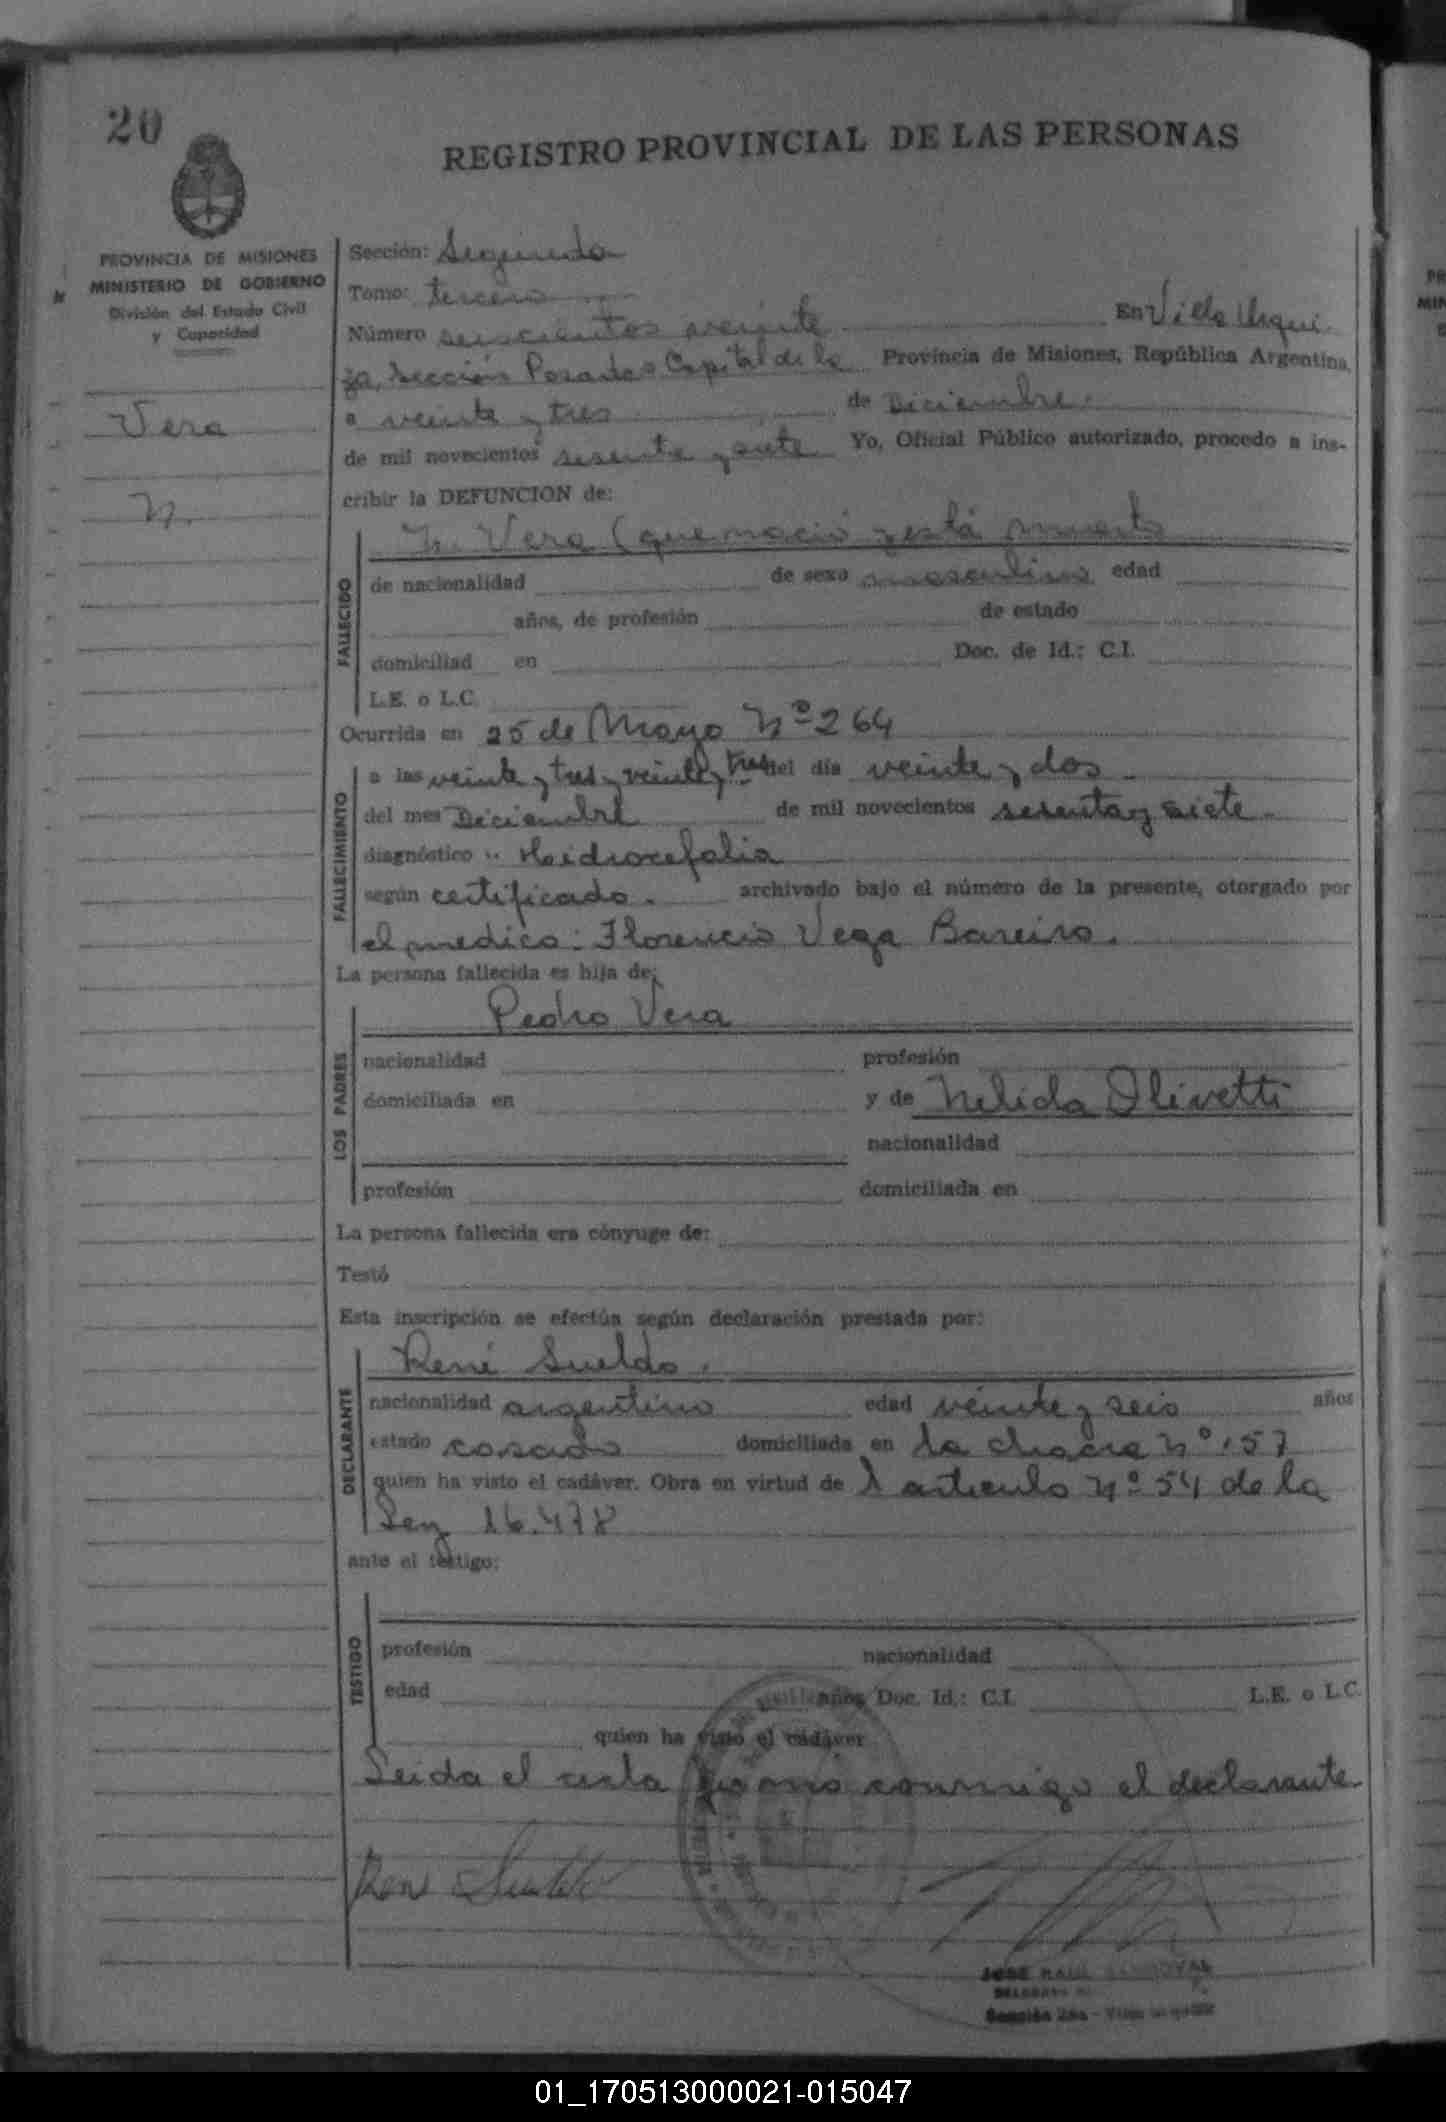 20
REGISTRO PROVINCIAL DE LAS PERSONAS
PROVINCIA DE MISIONES
MINISTERIO DE GOBIERNO
División del Estado Civil
y Capacidad
Vera
N.
Sección: Segunda
Tomo: tercero
Número seiscientos veinte En Villa Urqui
za, Sección Posadas Capital de la Provincia de Misiones, República Argentina,
a veinte y tres de Diciembre.
de mil novecientos sesenta y siete Yo, Oficial Público autorizado, procedo a ins-
cribir la DEFUNCION de:
N. Vera (que nació y está muerto
FALLECIDO
de nacionalidad de sexo masculino edad
años, de profesión de estado
domiciliad en Doc. de Id.: C.I.
L.E. o L.C.
Ocurrida en 25 de Mayo Nº 264
FALLECIMIENTO
a las veinte y tres y veinte y tres del día veinte y dos
del mes Diciembre de mil novecientos sesenta y siete
diagnóstico Heidrocefalia
según certificado. archivado bajo el número de la presente, otorgado por
el medico: Florencio Vega Bareiro.
La persona fallecida es hija de:
LOS PADRES
Pedro Vera
nacionalidad profesión
domiciliada en y de Nelida Olivetti
nacionalidad
profesión domiciliada en
La persona fallecida era cónyuge de:
Testó
Esta inscripción se efectúa según declaración prestada por:
DECLARANTE
René Sueldo.
nacionalidad argentino edad veinte y seis años
estado casado domiciliada en la chacra Nº 157
quien ha visto el cadáver. Obra en virtud de l articulo Nº 54 de la
Ley 16.478
ante el testigo:
TESTIGO
profesión nacionalidad
edad años Doc. Id.: C.I. L.E. o L.C.
quien ha visto el cadáver
Leida el acta firmó conmigo el declarante
René Sueldo
JOSE RAUL SANDOVAL
Sección 2da - Villa Urquiza
01_170513000021-015047